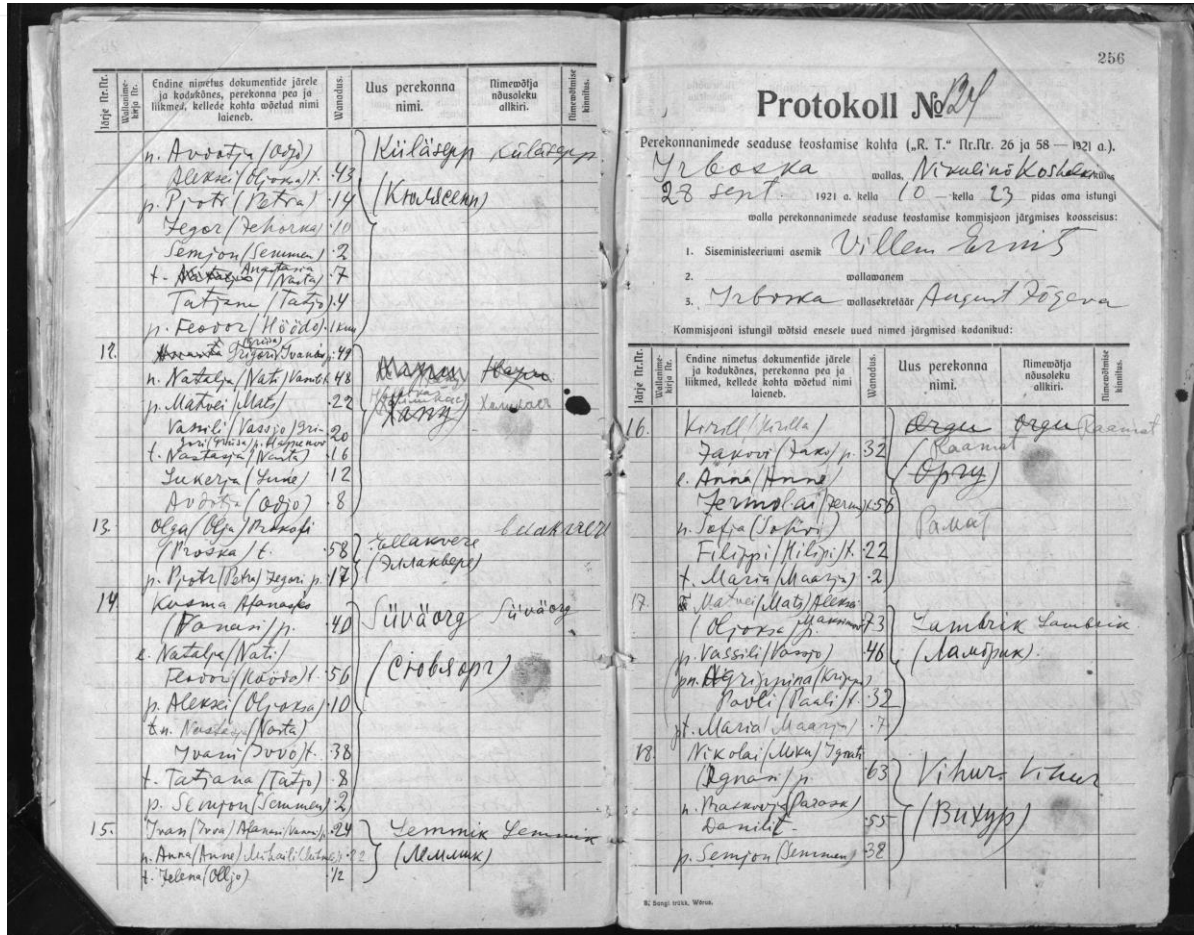 Järje Nr.Nr.
Wallanimekirja Nr.
Endine nimetus dokumentide järele ja kodukõnes, perekonna pea ja liikmed, kellede kohta wõetud nimi laieneb.
Wanadus.
Uus perekonna nimi.
Nimewõtja nõusoleku allkiri.
Nimewõtmise kinnitus.
n. Avdotja (Odjo) Küläsepp Küläsepp
Aleksei (Oljoksa) t. 43
p. Pjotr (Petra) 14 (Кюлясепп)
Jegor (Jehorka) 10
Semjon (Semmen) 2
t. Anastasia (Nasta) 7
Tatjana (Tatjo) 4
p. Feodor (Höödo) 1 kuu
12. Grigori (Griša) Ivani p. 49
n. Natalja (Nati) 48
p. Matvei (Mats) 22
Vassili (Vassjo) Gri-
gori (Griisa) p. 20
t. Nastasja (Nasta) 16
Lukerja (Luke) 12
Avdotja (Odjo) 8
13. Olga (Olja) Prokofi
(Proska) t. 58 Ellakvere
p. Pjotr (Petra) Jegori p. 17 (Эллаквере)
14. Kusma Afanasjo
(Vanasi) p. 40 Süväorg Süväorg
e. Natalja (Nati)
Feodori (Höödo) t. 56 (Сювяорг)
p. Aleksei (Oljoksa) 10
n. Nastasja (Nasta)
Ivani (Ivvo) t. 38
t. Tatjana (Tatjo) 8
p. Semjon (Semmen) 2
15. Ivan (Ivva) Afanasi p. 24 Lemmik Lemmik
n. Anna (Anne) Mihaili 22 (Леммик)
t. Jelena (Olljo) 1/2
256
Protokoll № 124
Perekonnanimede seaduse teostamise kohta („R. T.“ Nr.Nr. 26 ja 58 — 1921 a.).
Irboska wallas, Nikulinò külas
28 sept. 1921 a. kella 10 — kella 23 pidas oma istungi
walla perekonnanimede seaduse teostamise kommisjoon järgmises koosseisus:
1. Siseministeeriumi asemik Villem Ernits
2. wallawanem
3. Irboska wallasekretäär August Jõgeva
Kommisjooni istungil wõtsid enesele uued nimed järgmised kodanikud:
Järje Nr.Nr.
Wallanimekirja Nr.
Endine nimetus dokumentide järele ja kodukõnes, perekonna pea ja liikmed, kellede kohta wõetud nimi laieneb.
Wanadus.
Uus perekonna nimi.
Nimewõtja nõusoleku allkiri.
Nimewõtmise kinnitus.
16. Kirill (Kirilla) Orgu Orgu Raamat
Jakovi (Jako) p. 32 Raamat
e. Anna (Anne) (Оргу)
Jermolai t. 56
n. Sofja (Sohvi) Рамат
Filippi (Hilipi) t. 22
t. Maria (Maarja) 2
17. Matvei (Mats) Aleksei
(Oljoksa) p. 73 Lambrik Lambrik
p. Vassili (Vassjo) 46 (Ламбрик).
pn. Agrippina (Krippa)
Pavli (Paali) t. 32
pt. Maria (Maarja) 7
18. Nikolai (Miku) Ignati
(Ignasi) p. 63 Vihur Vihur
n. Praskovja (Parask)
Danili t. 55 (Вихур)
p. Semjon (Semmen) 32
B. Songi trükk, Wõrus.